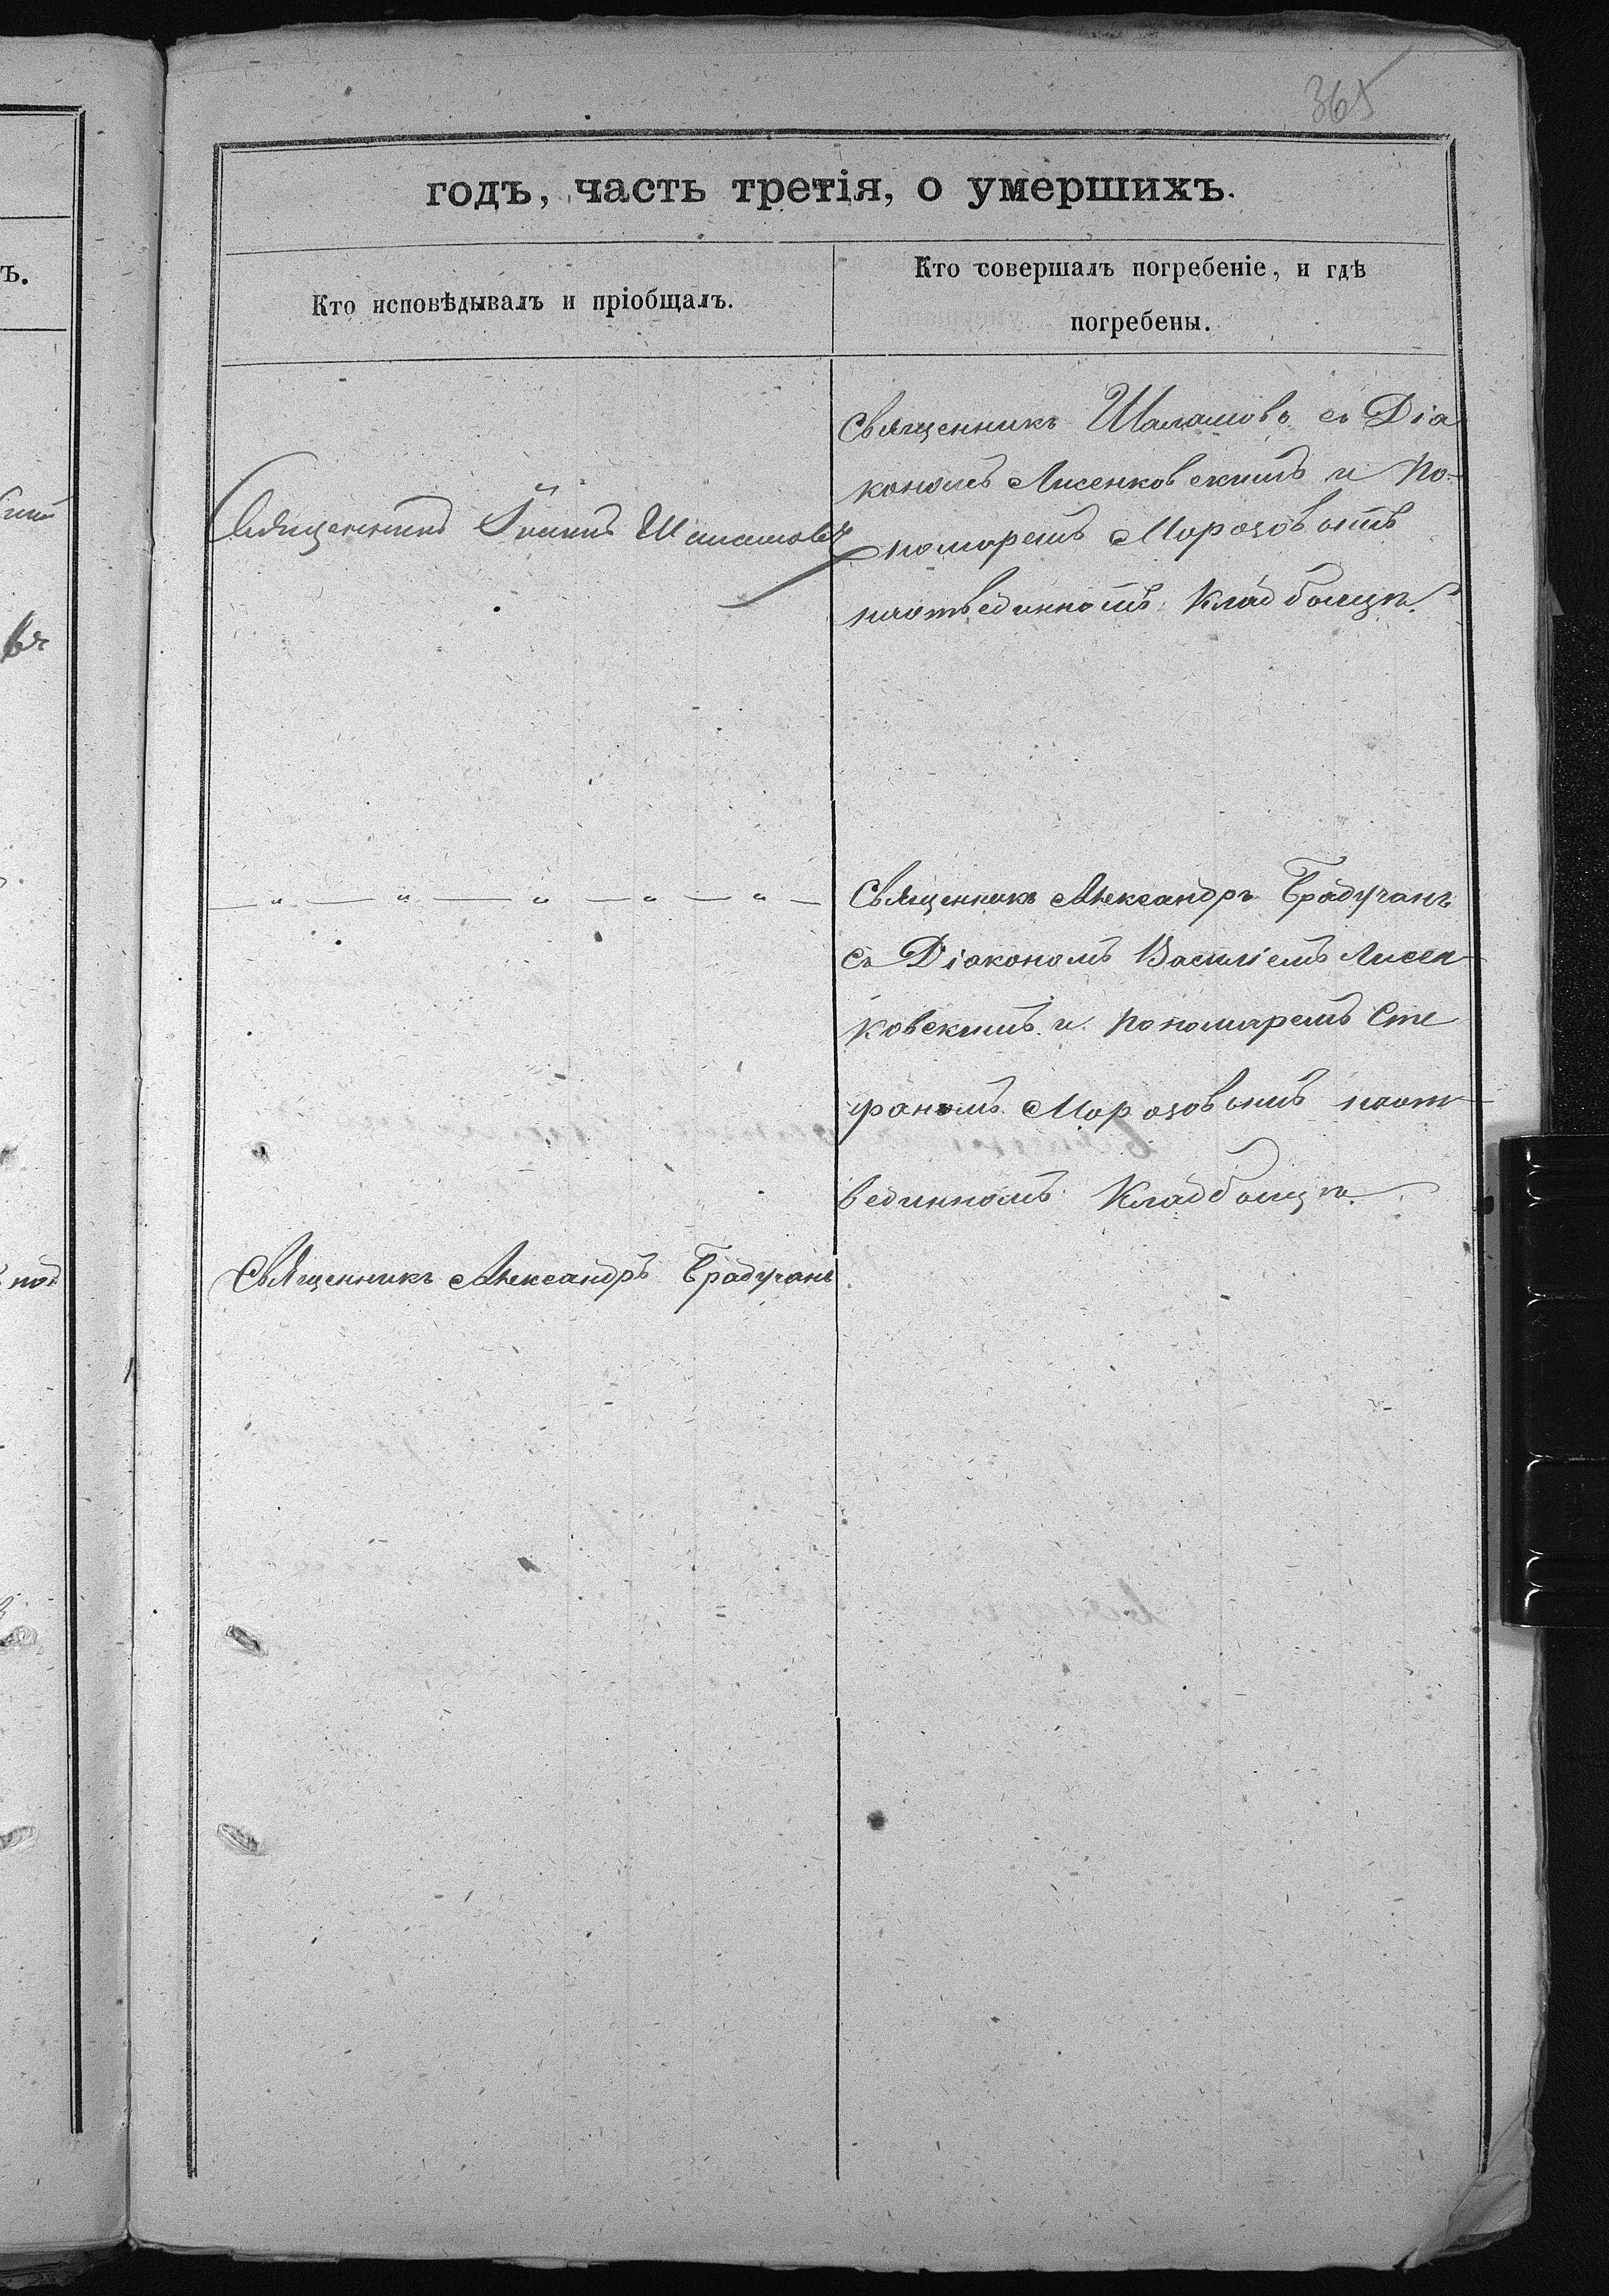 365
годъ, часть третія, о умершихъ.
Кто исповѣдывалъ и пріобщалъ.
Кто совершалъ погребеніе, и гдѣ
погребены.
Священникъ Шаламовъ съ Діа
кономъ Лисенковскимъ и По-
номаремъ Морозовымъ
наотведенномъ Кладбищѣ.
Священникъ Іоаннъ Шаламовъ
— „ — „ — „ — „ — „ —
Священникъ Александръ Брадучанъ
съ Діакономъ Василіемъ Лисен-
ковскимъ и Пономаремъ Сте
фаномъ Морозовымъ наот-
веденномъ Кладбищѣ.
Священникъ Александръ Брадучанъ
ъ.